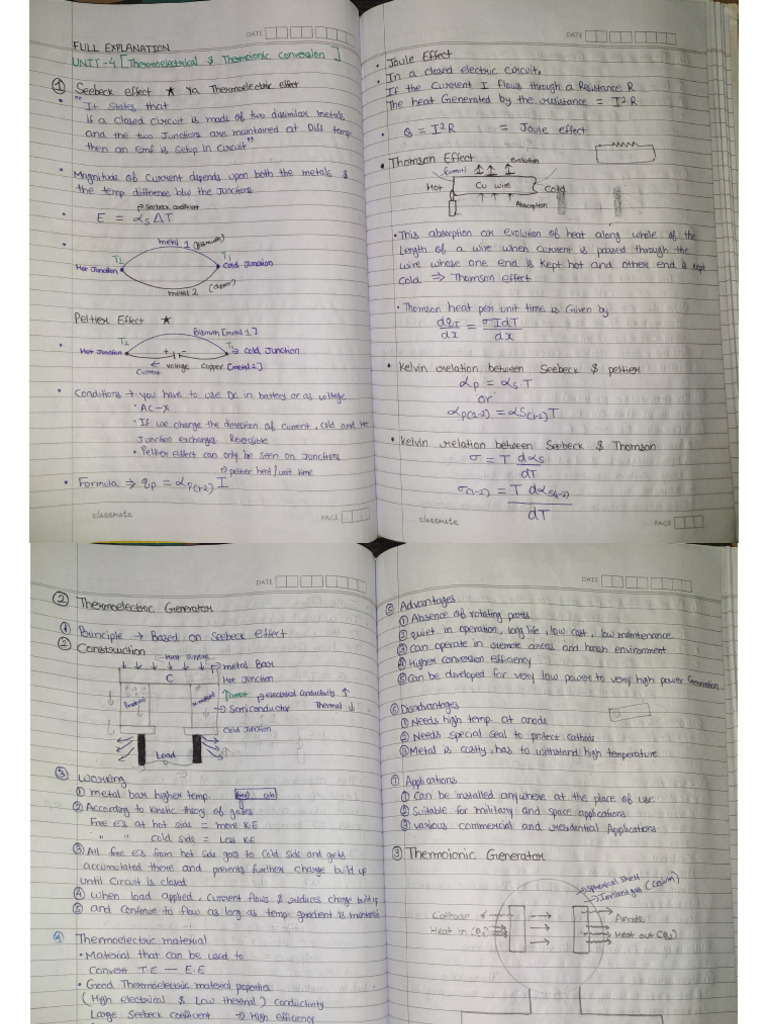 DATE
FULL EXPLANATION
UNIT-4 [Thermoelectrical & Thermoionic Conversion]
① Seebeck effect ★ Ya Thermoelectric effect
• "It States that
if a closed circuit is made of two dissimilar metals
and the two Junctions are maintained at Diff temp
then an emf is setup in Circuit"
• Magnitude of Current depends upon both the metals &
the temp difference b/w the Junctions
Seebeck coefficient
• E = αsΔT
metal 1 (Bismuth)
T2
T1
Hot Junction
Cold Junction
metal 2 (Copper)
Peltier Effect ★
Bismuth [metal 1]
T2
T1
• Hot Junction
+ -
→ Cold Junction
Current
voltage
Copper [metal 2]
• Conditions → you have to use DC in battery or as voltage
• AC - X
• If we change the direction of current, cold and Hot
Junction exchanges Reversible
• Peltier effect can only be seen on Junctions
peltier heat/unit time
• Formula ⇒ qp = αp(1-2) I
classmate
PAGE
DATE
• Joule Effect
• In a closed electric circuit,
If the Current I flows through a Resistance R
The heat Generated by the resistance = I²R
• Q = I²R = Joule effect
• Thomson Effect
evolution
(Current)
Hot
Cu wire
Cold
Absorption
• This absorption or evolution of heat along whole of the
Length of a wire when current is passed through the
wire whose one end is kept hot and other end is kept
cold ⇒ Thomson effect
• Thomson heat per unit time is Given by
dqT/dx = σIdT/dx
• Kelvin relation between Seebeck & peltier
αp = αs.T
or
αp(1-2) = αs(1-2)T
• Kelvin relation between Seebeck & Thomson
σ = T dαs/dT
σ(1-2) = T dαs(1-2)/dT
classmate
PAGE
DATE
② Thermoelectric Generator
① Principle → Based on Seebeck effect
② Construction
Heat Supplied
→ metal Bar
C
Hot Junction
electrical conductivity ↑
→ Semiconductor
Thermal ↓
Cold Junction
Load
③ Working
① metal bar higher temp.
Hot cold
② According to kinetic theory of gases
Free e⁻s at hot side = more K.E
" " cold side = Less K.E
③ All free e⁻s from hot side goes to Cold Side and gets
accumulated there and prevents further charge build up
until circuit is closed
④ when load applied, current flows & reduces charge build up
⑤ and continue to flow as long as temp gradient is maintained
④ Thermoelectric material
• Material that can be used to
Convert T.E — E.E
• Good Thermoelectric material properties
(High electrical & Low thermal) Conductivity
Large Seebeck coefficient ⇒ High efficiency
DATE
⑤ Advantages
① Absence of rotating parts
② quiet in operation, long life, low cost, low maintenance.
③ can operate in remote areas and harsh environment
④ Higher conversion efficiency
⑤ Can be developed for very low power to very high power Generation
⑥ Disadvantages
① Needs high temp. at anode
② Needs special seal to protect cathode
③ Metal is costly, has to withstand high temperature
⑦ Applications
① Can be installed anywhere at the place of use.
② Suitable for military and space applications
③ various commercial and residential Applications
③ Thermoionic Generator
→ Spherical Shell
→ Ionized gas (Cesium)
Cathode
Anode
Heat in (Q1)
Heat out (Q2)